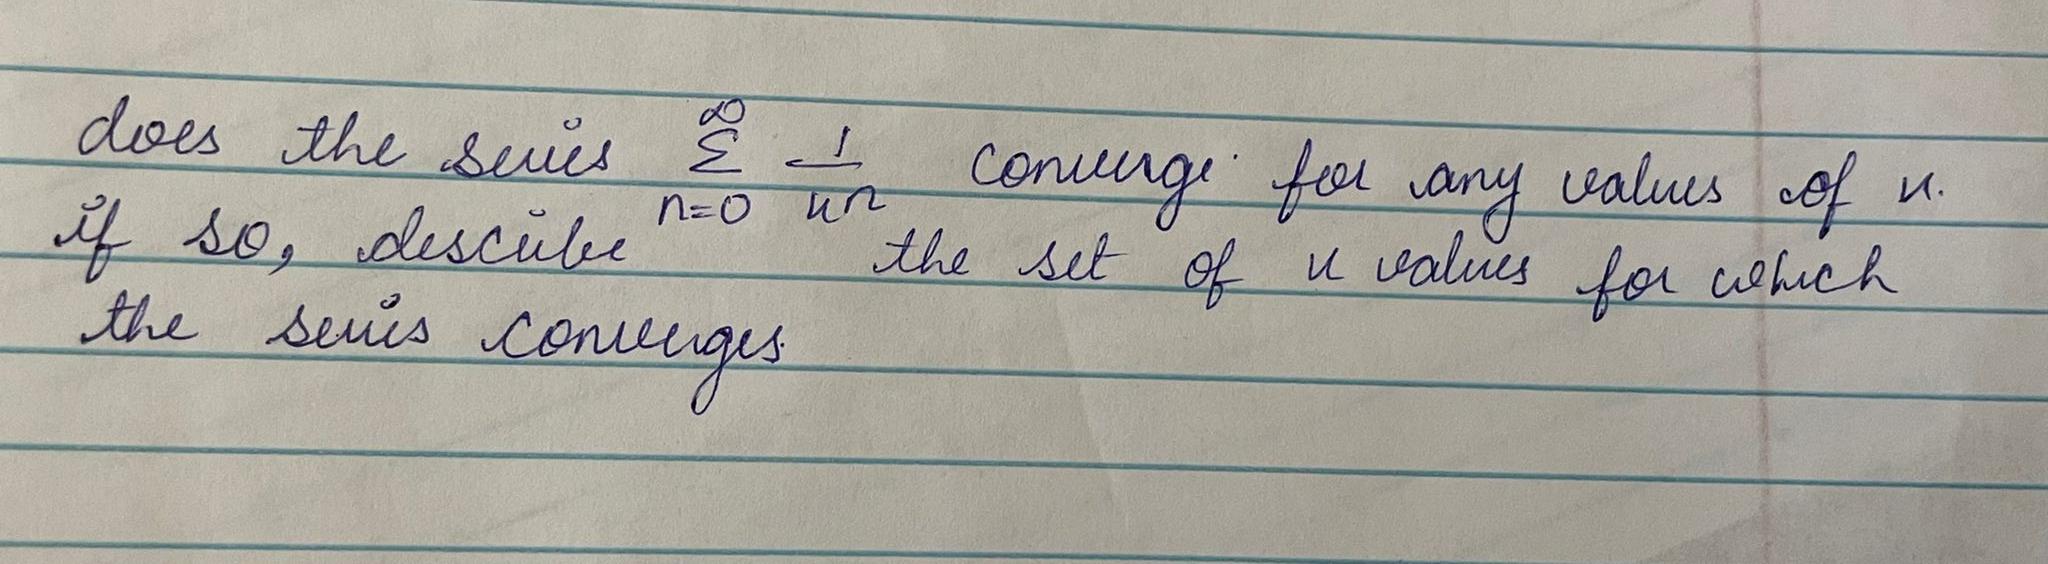 does the series $\sum_{n=0}^{\infty} \frac{1}{x^n}$ converge for any values of x.
if so, describe the set of x values for which
the series converges.